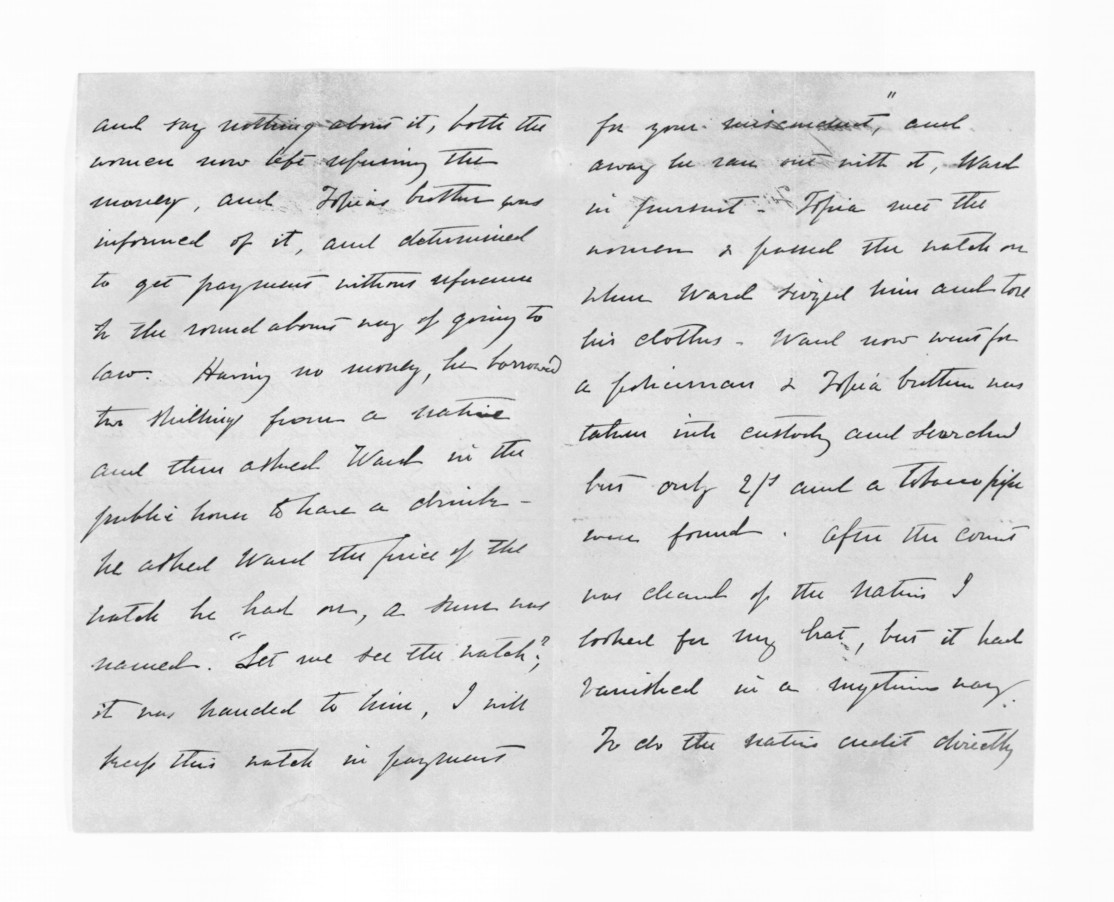 and say nothing about it, both the
women now left refusing the
money, and Topias brother was
informed of it, and determined
to get payment without reference
to the roundabout way of going to
law. Having no money, he borrowed
two shilling from a native
and then asked Ward in the
public house to have a drink -
he asked Ward the price of the
watch he had on, a sum was
named. "Let me see the watch";
it was handed to him, I will
keep this watch in payment
for your misconduct," and
away he ran out with it, Ward
in pursuit - Topia met the
women & passed the watch on
when Ward seized him and tore
his clothes - Ward now went for
a policeman & Topia brother was
taken into custody and searched
but only 2/s and a tobacco pipe
were found. After the court
was cleared of the natives I
looked for my hat, but it had
vanished in a mysterious way.
To do the natives credit directly